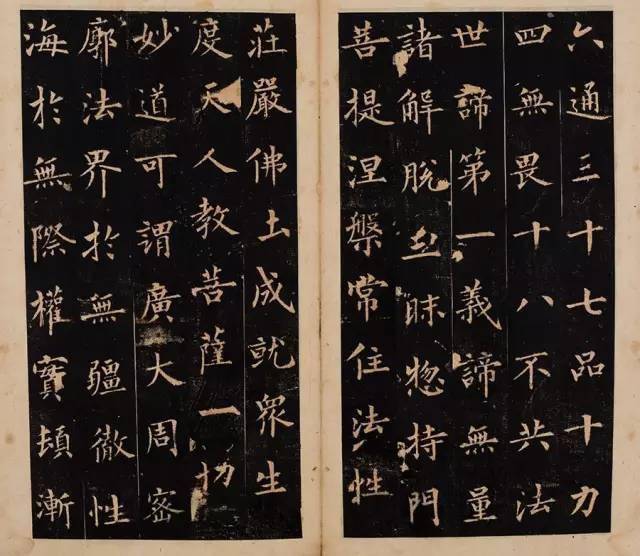 六通三十七品十力
四無畏十八不共法
世諦第一義諦無量
諸解脫三昧惣持門
菩提涅槃常住法性
莊嚴佛土成就眾生
度天人教菩薩一切
妙道可謂廣大周密
廓法界於無疆徹性
海於無際權實頓漸